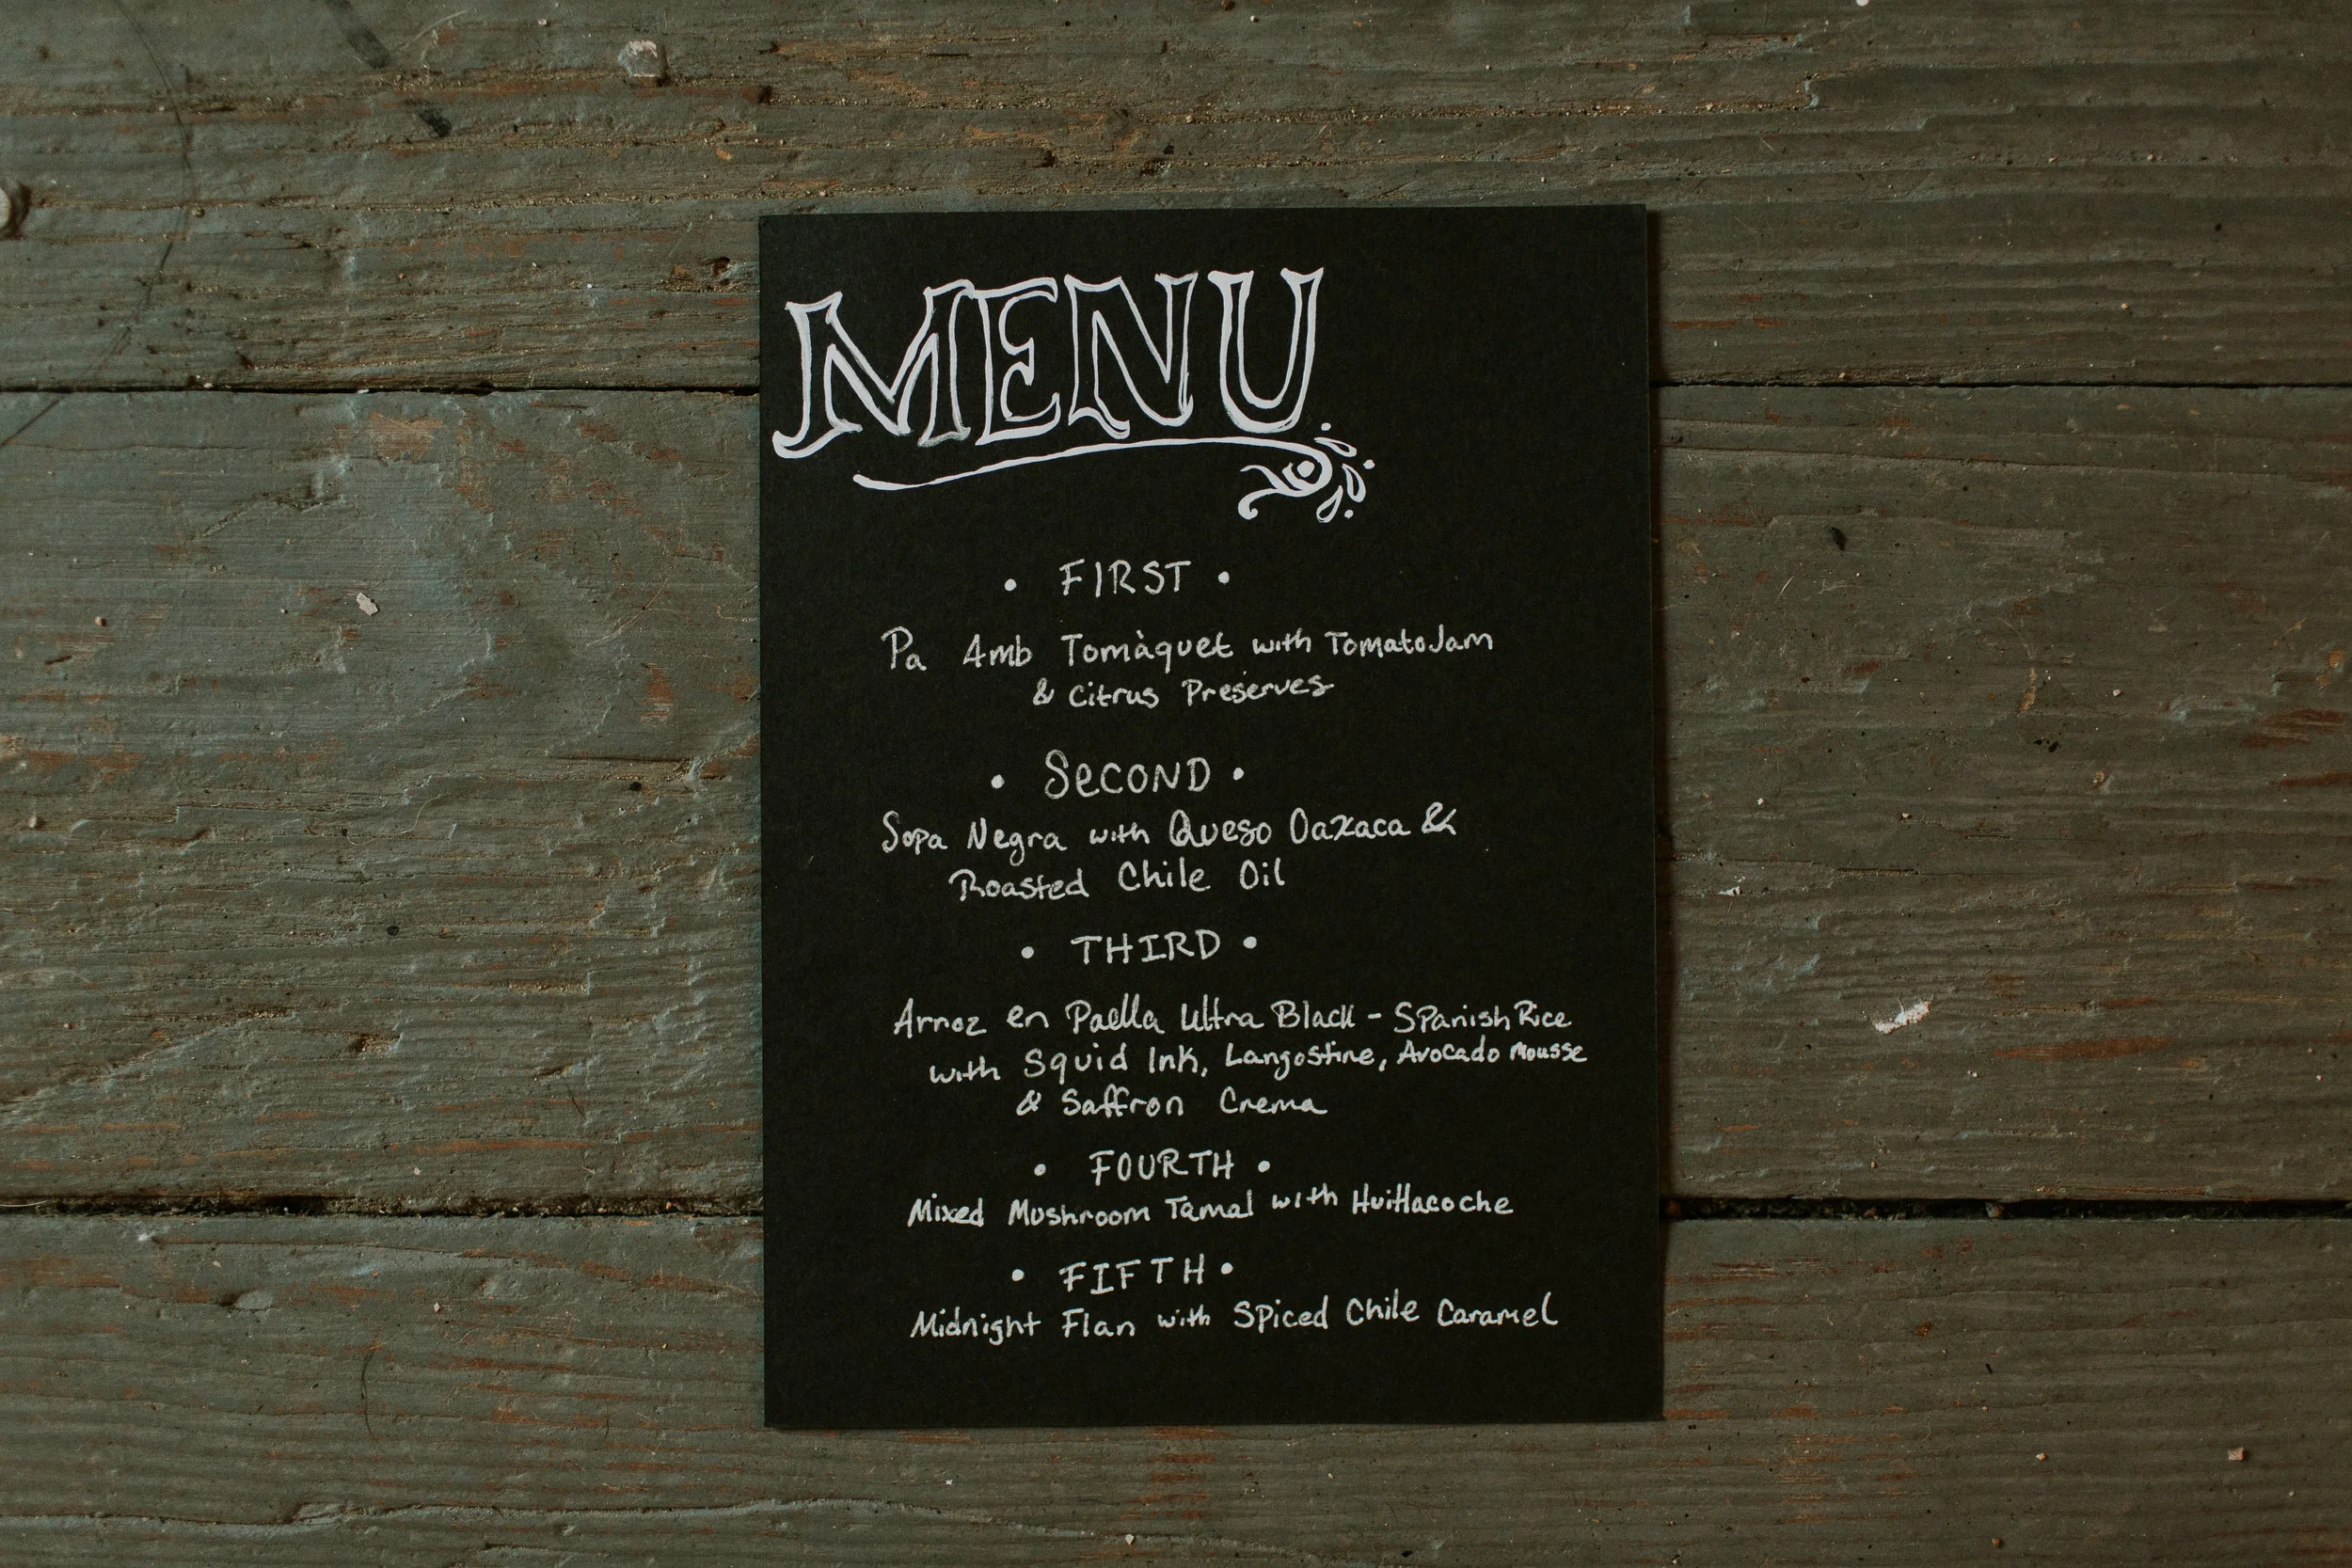 MENU
• FIRST •
Pa Amb Tomàquet with Tomato Jam
& Citrus Preserves
• SeCOND •
Sopa Negra with Queso Oaxaca &
Roasted Chile Oil
• THIRD •
Arroz en Paella Ultra Black - Spanish Rice
with Squid Ink, Langostine, Avocado Mousse
& Saffron Crema
• FOURTH •
Mixed Mushroom Tamal with Huitlacoche
• FIFTH •
Midnight Flan with Spiced Chile Caramel